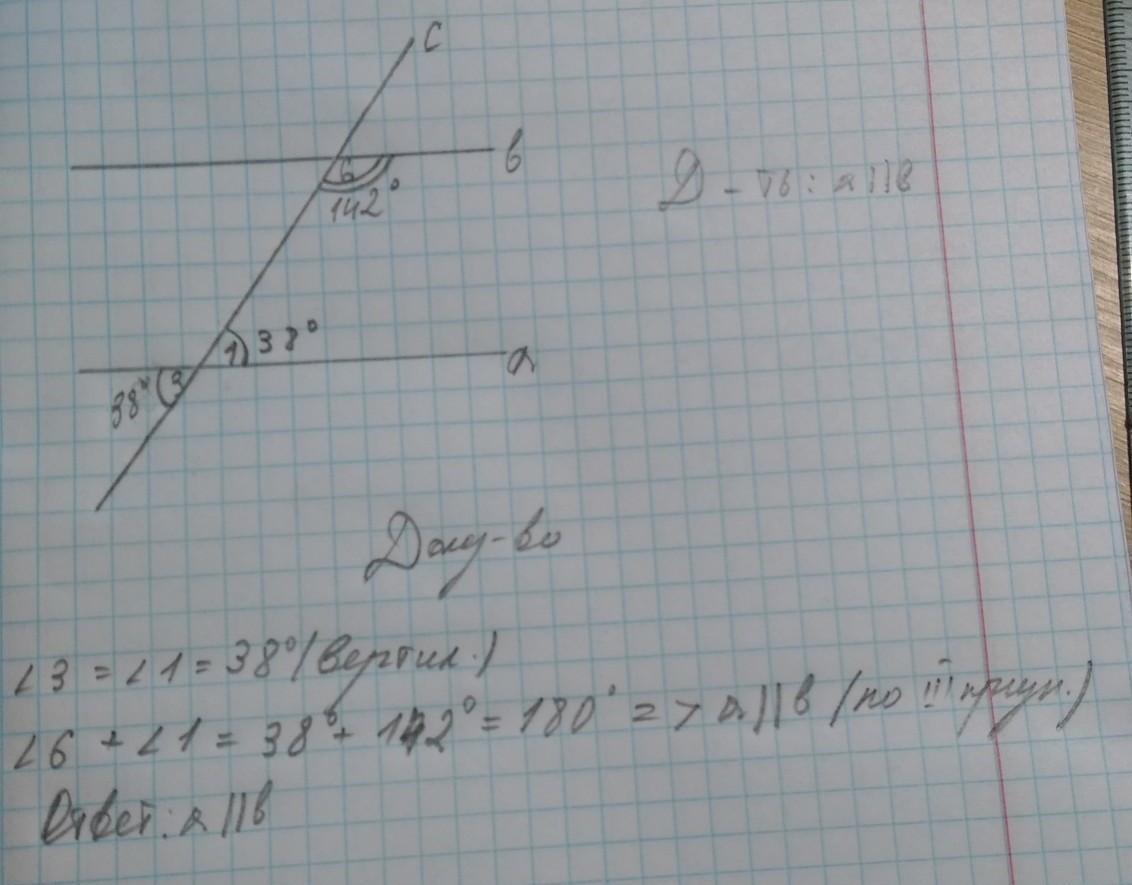 c
b
6
142°
Д-ть: a||b
1 38°
a
38° 3
Док-во
∠3 = ∠1 = 38° (вертик.)
∠6 + ∠1 = 38° + 142° = 180° => a||b (по III призн.)
Ответ: a||b